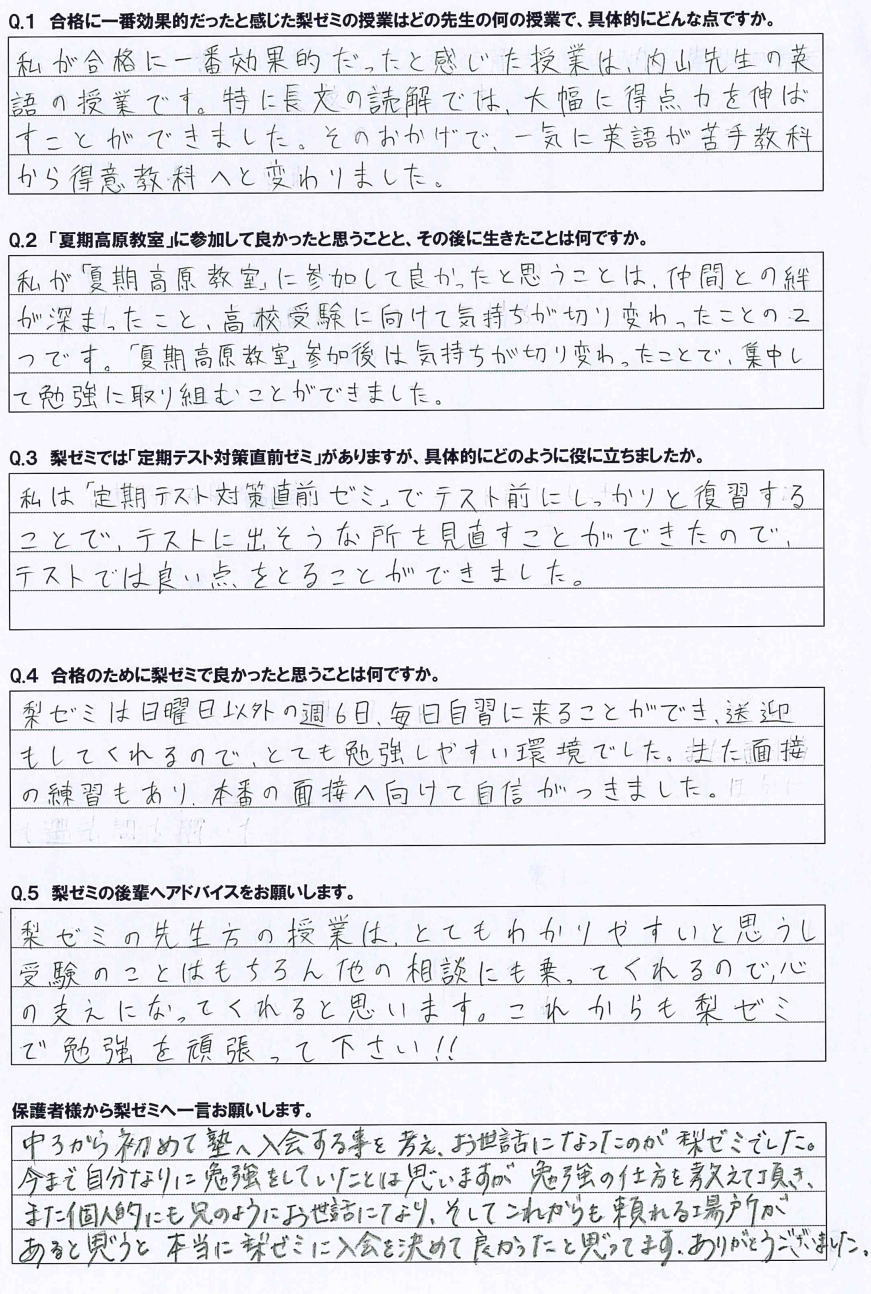 Q.1 合格に一番効果的だったと感じた梨ゼミの授業はどの先生の何の授業で、具体的にどんな点ですか。
私が合格に一番効果的だったと感じた授業は、内山先生の英
語の授業です。特に長文の読解では、大幅に得点力を伸ば
すことができました。そのおかげで、一気に英語が苦手教科
から得意教科へと変わりました。
Q.2 「夏期高原教室」に参加して良かったと思うことと、その後に生きたことは何ですか。
私が「夏期高原教室」に参加して良かったと思うことは、仲間との絆
が深まったこと、高校受験に向けて気持ちが切り変わったことの2
つです。「夏期高原教室」参加後は気持ちが切り変わったことで、集中し
て勉強に取り組むことができました。
Q.3 梨ゼミでは「定期テスト対策直前ゼミ」がありますが、具体的にどのように役に立ちましたか。
私は「定期テスト対策直前ゼミ」でテスト前にしっかりと復習する
ことで、テストに出そうな所を見直すことができたので、
テストでは良い点をとることができました。
Q.4 合格のために梨ゼミで良かったと思うことは何ですか。
梨ゼミは日曜日以外の週6日、毎日自習に来ることができ、送迎
もしてくれるので、とても勉強しやすい環境でした。また面接
の練習もあり、本番の面接へ向けて自信がつきました。
Q.5 梨ゼミの後輩へアドバイスをお願いします。
梨ゼミの先生方の授業は、とてもわかりやすいと思うし
受験のことはもちろん他の相談にも乗ってくれるので、心
の支えになってくれると思います。これからも梨ゼミ
で勉強を頑張って下さい!!
保護者様から梨ゼミへ一言お願いします。
中3から初めて塾へ入会する事を考え、お世話になったのが梨ゼミでした。
今まで自分なりに勉強をしていたことは思いますが勉強の仕方を教えて頂き、
また個人的にも兄のようにお世話になり、そしてこれからも頼れる場所が
あると思うと本当に梨ゼミに入会を決めて良かったと思ってます。ありがとうございました。